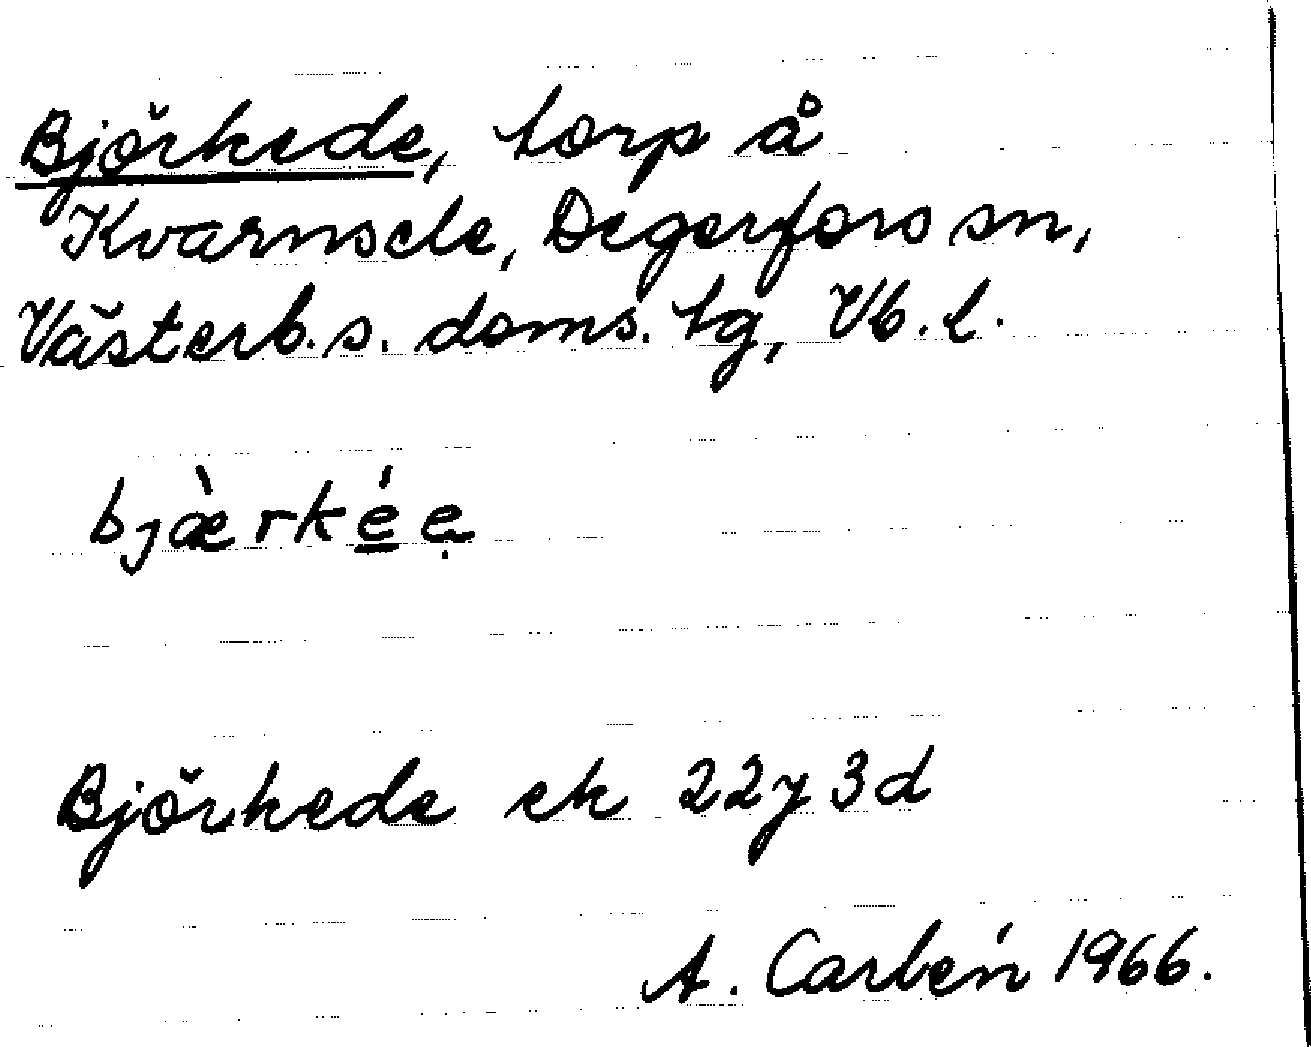 Björkede, torp å
Kvarnsele, Degerfors sn,
Västerb. s. doms. tg, Vb. l.
bjæ̀rkéẹ
Björkede ek 22y3d
A. Carbén 1966.